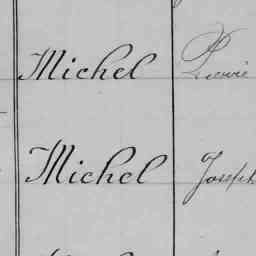 Michel Pierre
Michel Joseph